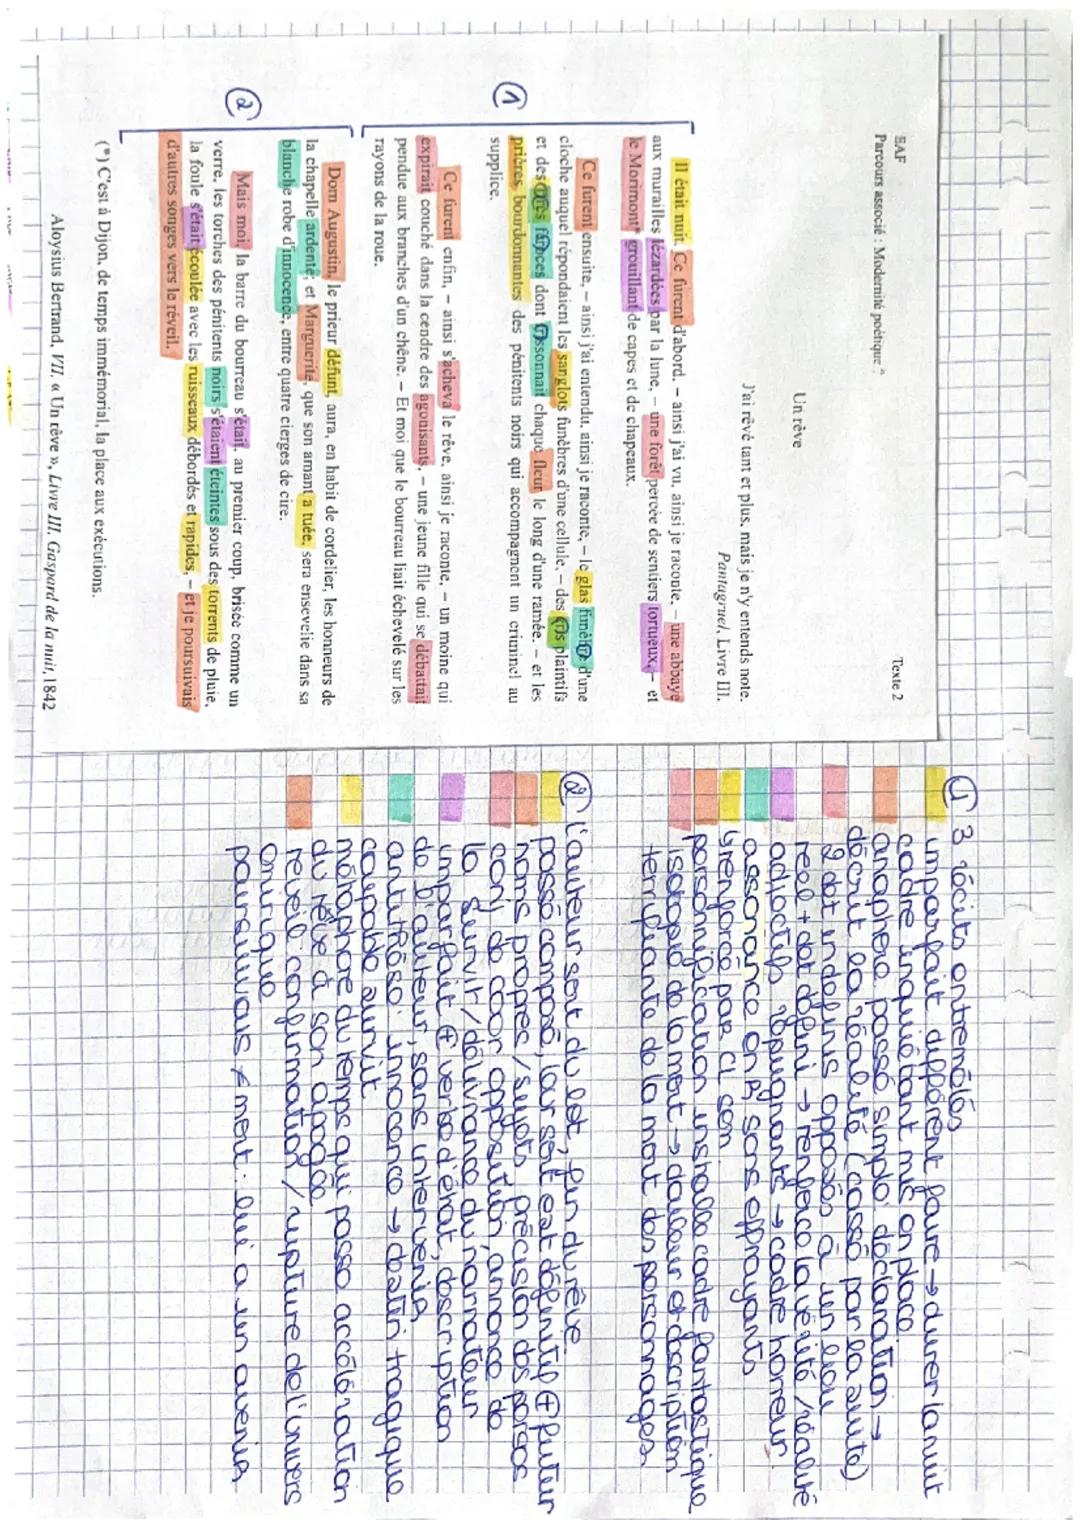 EAF
Parcours associé : Modernité poétique
Texte 2
Un rêve
J'ai rêvé tant et plus, mais je n'y entends note.
Pantagruel, Livre III.
Il était nuit. Ce furent d'abord, – ainsi j'ai vu, ainsi je raconte, – une abbaye
aux murailles lézardées par la lune, – une forêt percée de sentiers tortueux, – et
le Morimont* grouillant de capes et de chapeaux.
① Ce furent ensuite, – ainsi j'ai entendu, ainsi je raconte, – le glas funèbre d'une
cloche auquel répondaient les sanglots funèbres d'une cellule, – des cris plaintifs
et des rires féroces dont frissonnait chaque fleur le long d'une ramée, – et les
prières bourdonnantes des pénitents noirs qui accompagnent un criminel au
supplice.
Ce furent enfin, – ainsi s'acheva le rêve, ainsi je raconte, – un moine qui
expirait couché dans la cendre des agonisants, – une jeune fille qui se débattait
pendue aux branches d'un chêne. – Et moi que le bourreau liait échevelé sur les
rayons de la roue.
Dom Augustin, le prieur défunt, aura, en habit de cordelier, les honneurs de
la chapelle ardente; et Marguerite, que son amant a tuée, sera ensevelie dans sa
blanche robe d'innocence, entre quatre cierges de cire.
② Mais moi, la barre du bourreau s'était, au premier coup, brisée comme un
verre, les torches des pénitents noirs s'étaient éteintes sous des torrents de pluie,
la foule s'était écoulée avec les ruisseaux débordés et rapides, – et je poursuivais
d'autres songes vers le réveil.
(*) C'est à Dijon, de temps immémorial, la place aux exécutions.
Aloysius Bertrand, VII. « Un rêve », Livre III. Gaspard de la nuit, 1842
① 3 récits entremêlés
imparfait différent fave → durer la nuit
cadre inquiétant mis en place
anaphore passé simple: déclaration →
décrit la réalité (cassé par la suite)
2 dét indéfinis opposés à un lieu
réel + dét défini → renforce la vérité / réalité
adjectifs répugnants → cadre horreur
assonance en R, sons effrayants
↳ renforcé par CL son
personnification installe cadre fantastique
isotopie de la mort → douleur et description
terrifiante de la mort des personnages
② L'auteur sort du lot, fin du rêve
passé composé, leur sort est définitif ⊕ futur
noms propres / sujets, précision des persos
conj de coor opposition, annonce de
la survit / délivrance du narrateur
imparfait ⊕ verbe d'état, description
de l'auteur, sans intervenir
antithèse: innocence → destin tragique
coupable survit
métaphore du temps qui passe accélération
du rêve à son apogée
réveil: confirmation / rupture de l'univers
onirique
poursuivais ≠ mort: lui a un avenir